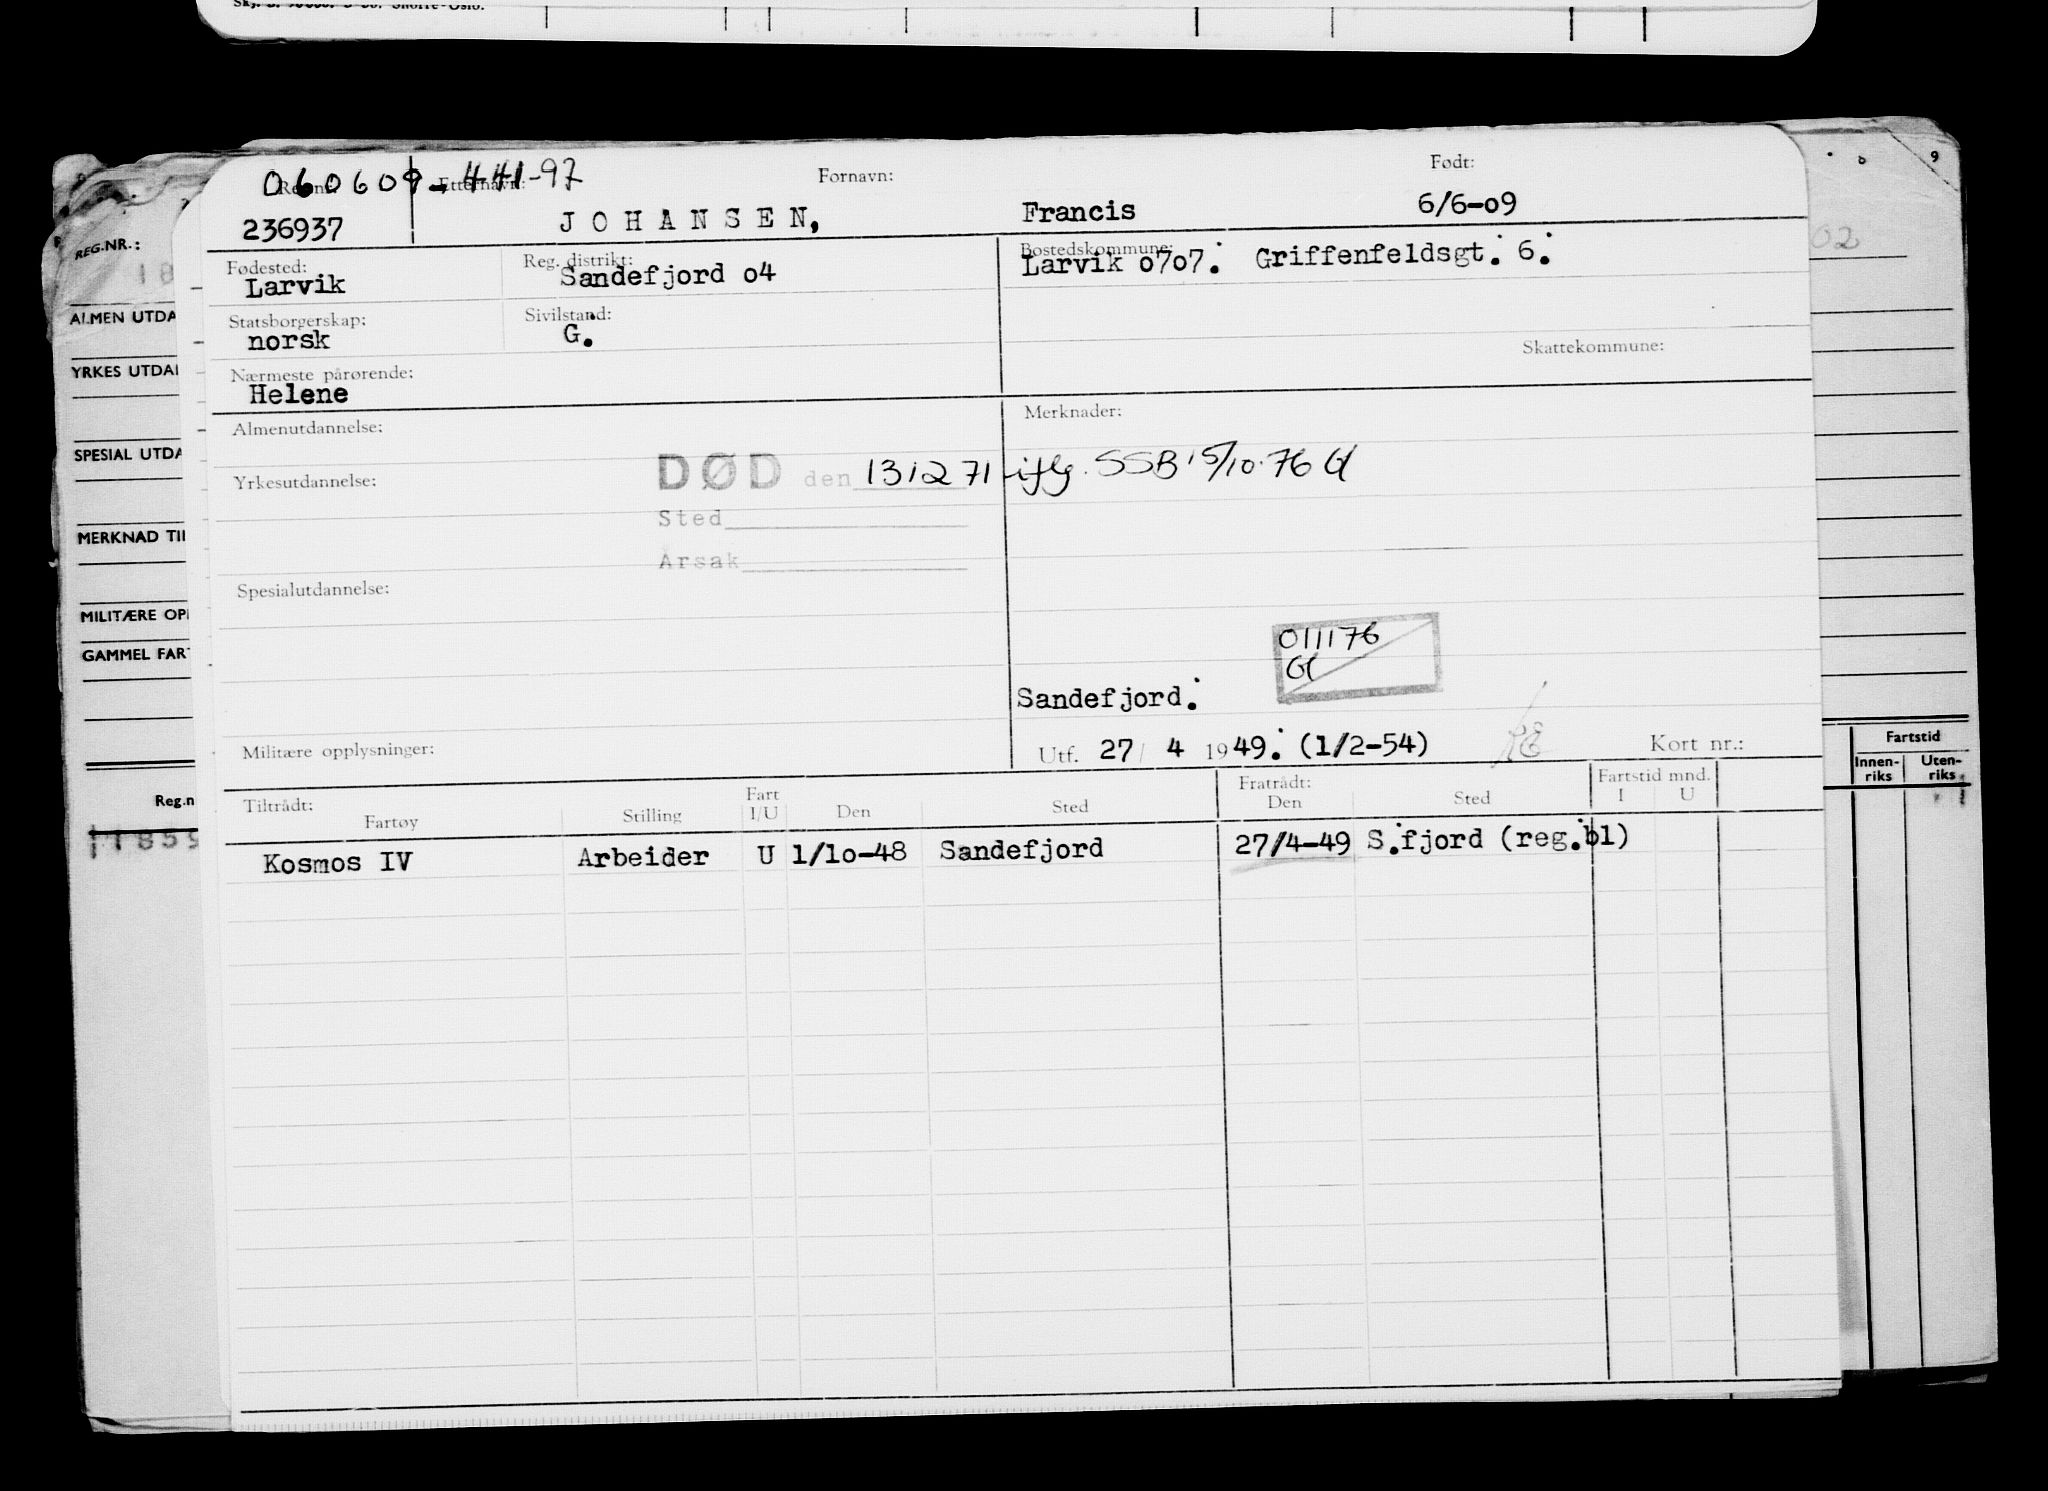 Skj. S. Snorre-Oslo.
9
REG.NR.:
18
02
ALMEN UTDA
YRKES UTDA
SPESIAL UTDA
MERKNAD TIL
MILITÆRE OP
GAMMEL FAR
Reg.n
11859
Fartstid
Innen-riks Uten-riks
060609-441-97
Reg.nr.: Etternavn: Fornavn: Født:
236937 JOHANSEN, Francis 6/6-o9
Fødested: Reg. distrikt: Bostedskommune:
Larvik Sandefjord o4 Larvik o7o7. Griffenfeldsgt. 6.
Statsborgerskap: Sivilstand:
norsk G.
Skattekommune:
Nærmeste pårørende:
Helene
Almenutdannelse: Merknader:
Yrkesutdannelse: DØD den 131271 iflg. SSB 15/10.76 Gl
Sted
Årsak
Spesialutdannelse:
011176
Gl
Sandefjord.
Militære opplysninger: Utf. 27/ 4 1949. (1/2-54) Kort nr.:
Tiltrådt: Fratrådt: Fartstid mnd.
Fartøy Stilling Fart I/U Den Sted Den Sted I U
Kosmos IV Arbeider U 1/1o-48 Sandefjord 27/4-49 S.fjord (reg.bl)